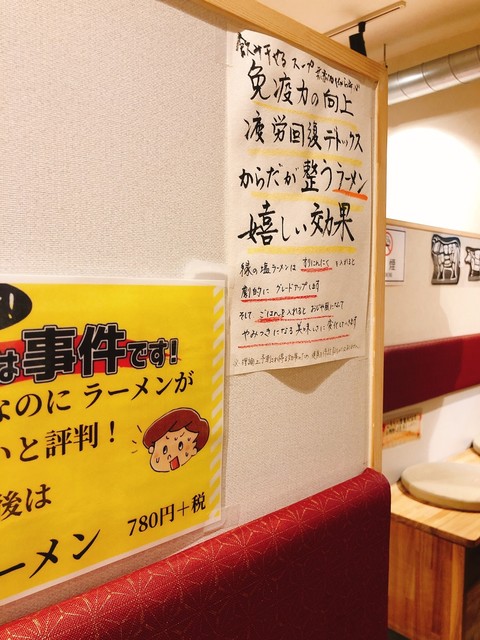 飲み干せるスープ
免疫力の向上
疲労回復デトックス
からだが整うラーメン
嬉しい効果
縁の塩ラーメンは すりにんにく 入れると
劇的に グレードアップします
そして ごはんを入れると おじや風になって
やみつきになる 美味しさに変化けます
は事件です!
なのに ラーメンが
いと評判!
後は
ーメン
780円+税